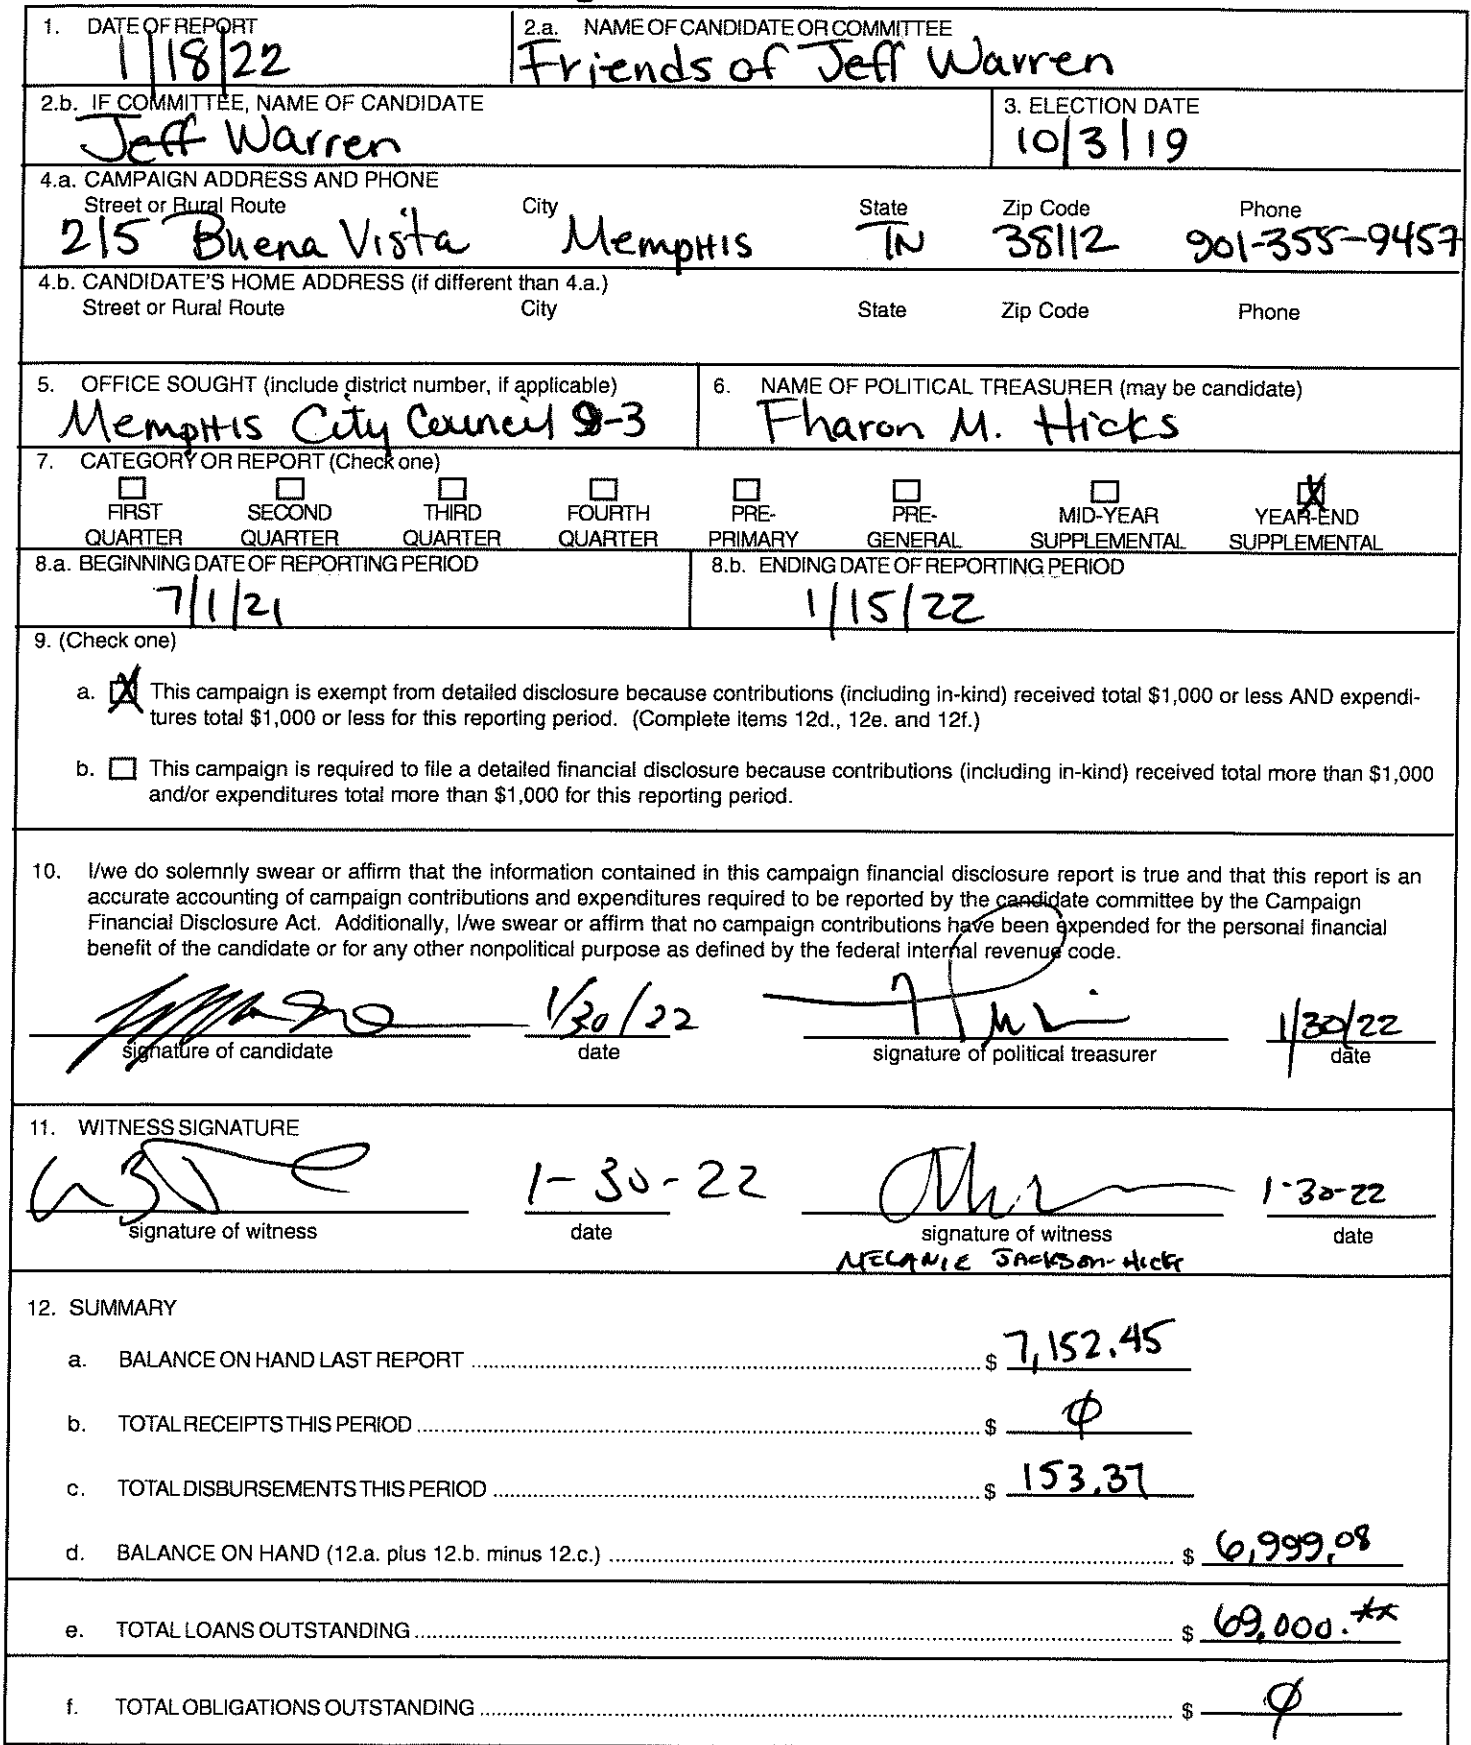 1. DATE OF REPORT
1/18/22
2.a. NAME OF CANDIDATE OR COMMITTEE
Friends of Jeff Warren
2.b. IF COMMITTEE, NAME OF CANDIDATE
Jeff Warren
3. ELECTION DATE
10/3/19
4.a. CAMPAIGN ADDRESS AND PHONE
Street or Rural Route City State Zip Code Phone
215 Buena Vista Memphis TN 38112 901-355-9457
4.b. CANDIDATE'S HOME ADDRESS (if different than 4.a.)
Street or Rural Route City State Zip Code Phone
5. OFFICE SOUGHT (include district number, if applicable)
Memphis City Council 9-3
6. NAME OF POLITICAL TREASURER (may be candidate)
Fharon M. Hicks
7. CATEGORY OR REPORT (Check one)
FIRST SECOND THIRD FOURTH PRE- PRE- MID-YEAR YEAR-END
QUARTER QUARTER QUARTER QUARTER PRIMARY GENERAL SUPPLEMENTAL SUPPLEMENTAL
8.a. BEGINNING DATE OF REPORTING PERIOD
7/1/21
8.b. ENDING DATE OF REPORTING PERIOD
1/15/22
9. (Check one)
a. X This campaign is exempt from detailed disclosure because contributions (including in-kind) received total $1,000 or less AND expendi-
tures total $1,000 or less for this reporting period. (Complete items 12d., 12e. and 12f.)
b. This campaign is required to file a detailed financial disclosure because contributions (including in-kind) received total more than $1,000
and/or expenditures total more than $1,000 for this reporting period.
10. I/we do solemnly swear or affirm that the information contained in this campaign financial disclosure report is true and that this report is an
accurate accounting of campaign contributions and expenditures required to be reported by the candidate committee by the Campaign
Financial Disclosure Act. Additionally, I/we swear or affirm that no campaign contributions have been expended for the personal financial
benefit of the candidate or for any other nonpolitical purpose as defined by the federal internal revenue code.
1/30/22 1/30/22
signature of candidate date signature of political treasurer date
11. WITNESS SIGNATURE
1-30-22 1-30-22
signature of witness date signature of witness date
MELANIE JACKSON-HICKS
12. SUMMARY
a. BALANCE ON HAND LAST REPORT $ 7,152.45
b. TOTAL RECEIPTS THIS PERIOD $ Ø
c. TOTAL DISBURSEMENTS THIS PERIOD $ 153.37
d. BALANCE ON HAND (12.a. plus 12.b. minus 12.c.) $ 6,999.08
e. TOTAL LOANS OUTSTANDING $ 69,000.xx
f. TOTAL OBLIGATIONS OUTSTANDING $ Ø